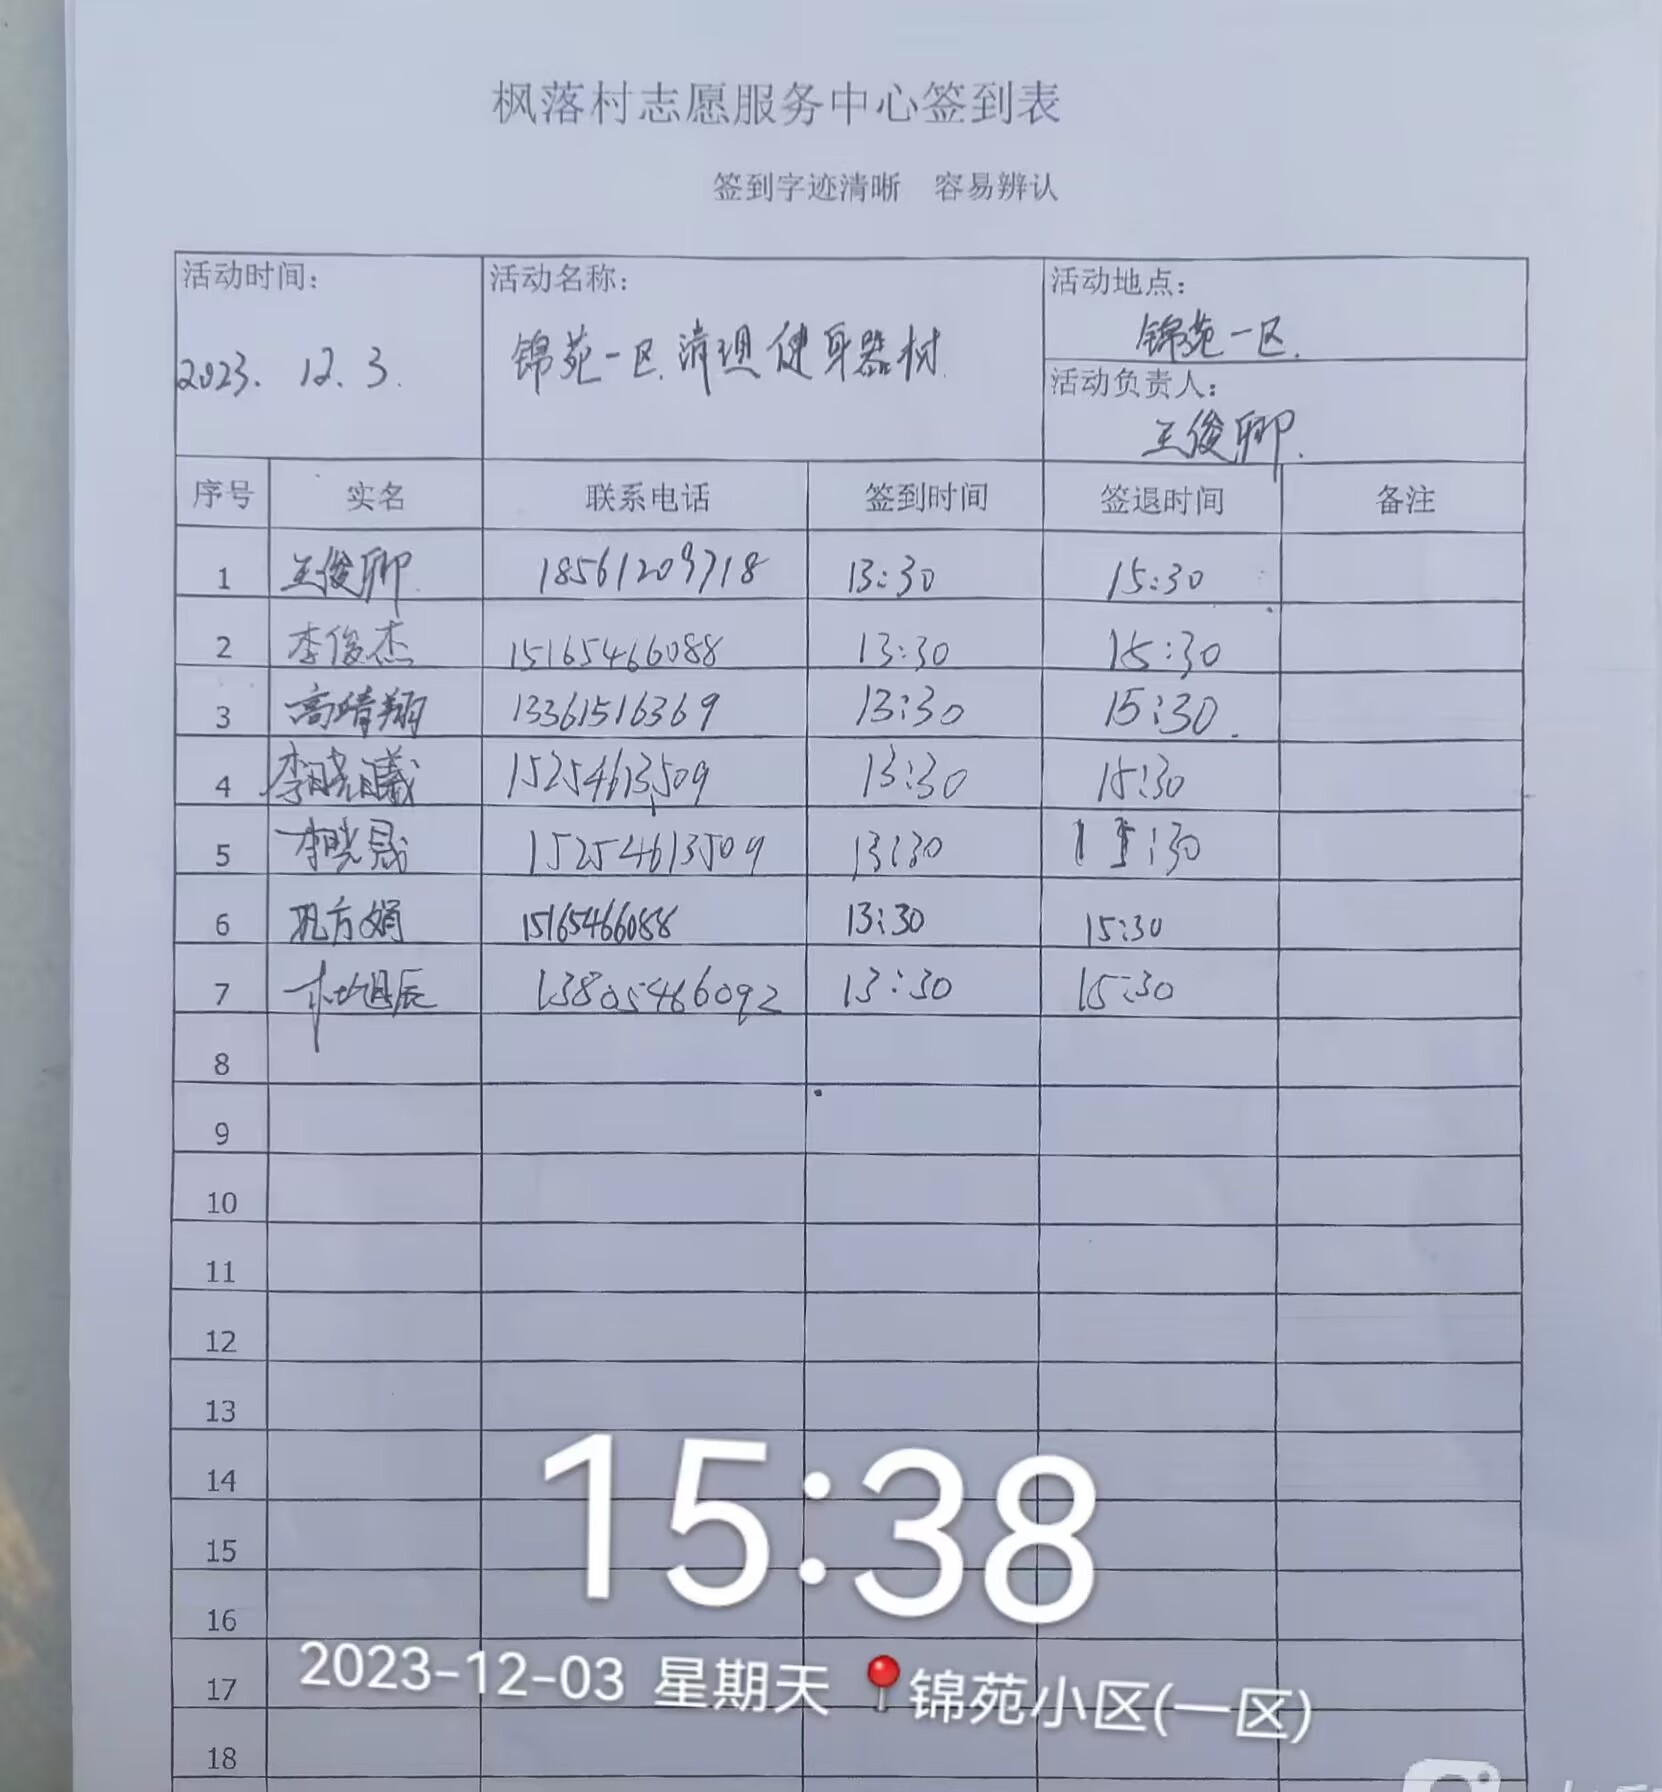 枫落村志愿服务中心签到表
签到字迹清晰 容易辨认
活动时间: 活动名称: 活动地点:
锦苑一区.
2023. 12. 3. 锦苑一区清理健身器材
活动负责人:
王俊卿.
序号 实名 联系电话 签到时间 签退时间 备注
1 王俊卿 18561209718 13:30 15:30
2 李俊杰 15165466088 13:30 15:30
3 高靖翔 13361516369 13:30 15:30
4 李晓曦 15254613509 13:30 15:30
5 李晓晟 15254613509 13:30 15:30
6 巩方娟 15165466088 13:30 15:30
7 13805466092 13:30 15:30
8
9
10
11
12
13
14
15
16
17
18
15:38
2023-12-03 星期天 锦苑小区(一区)